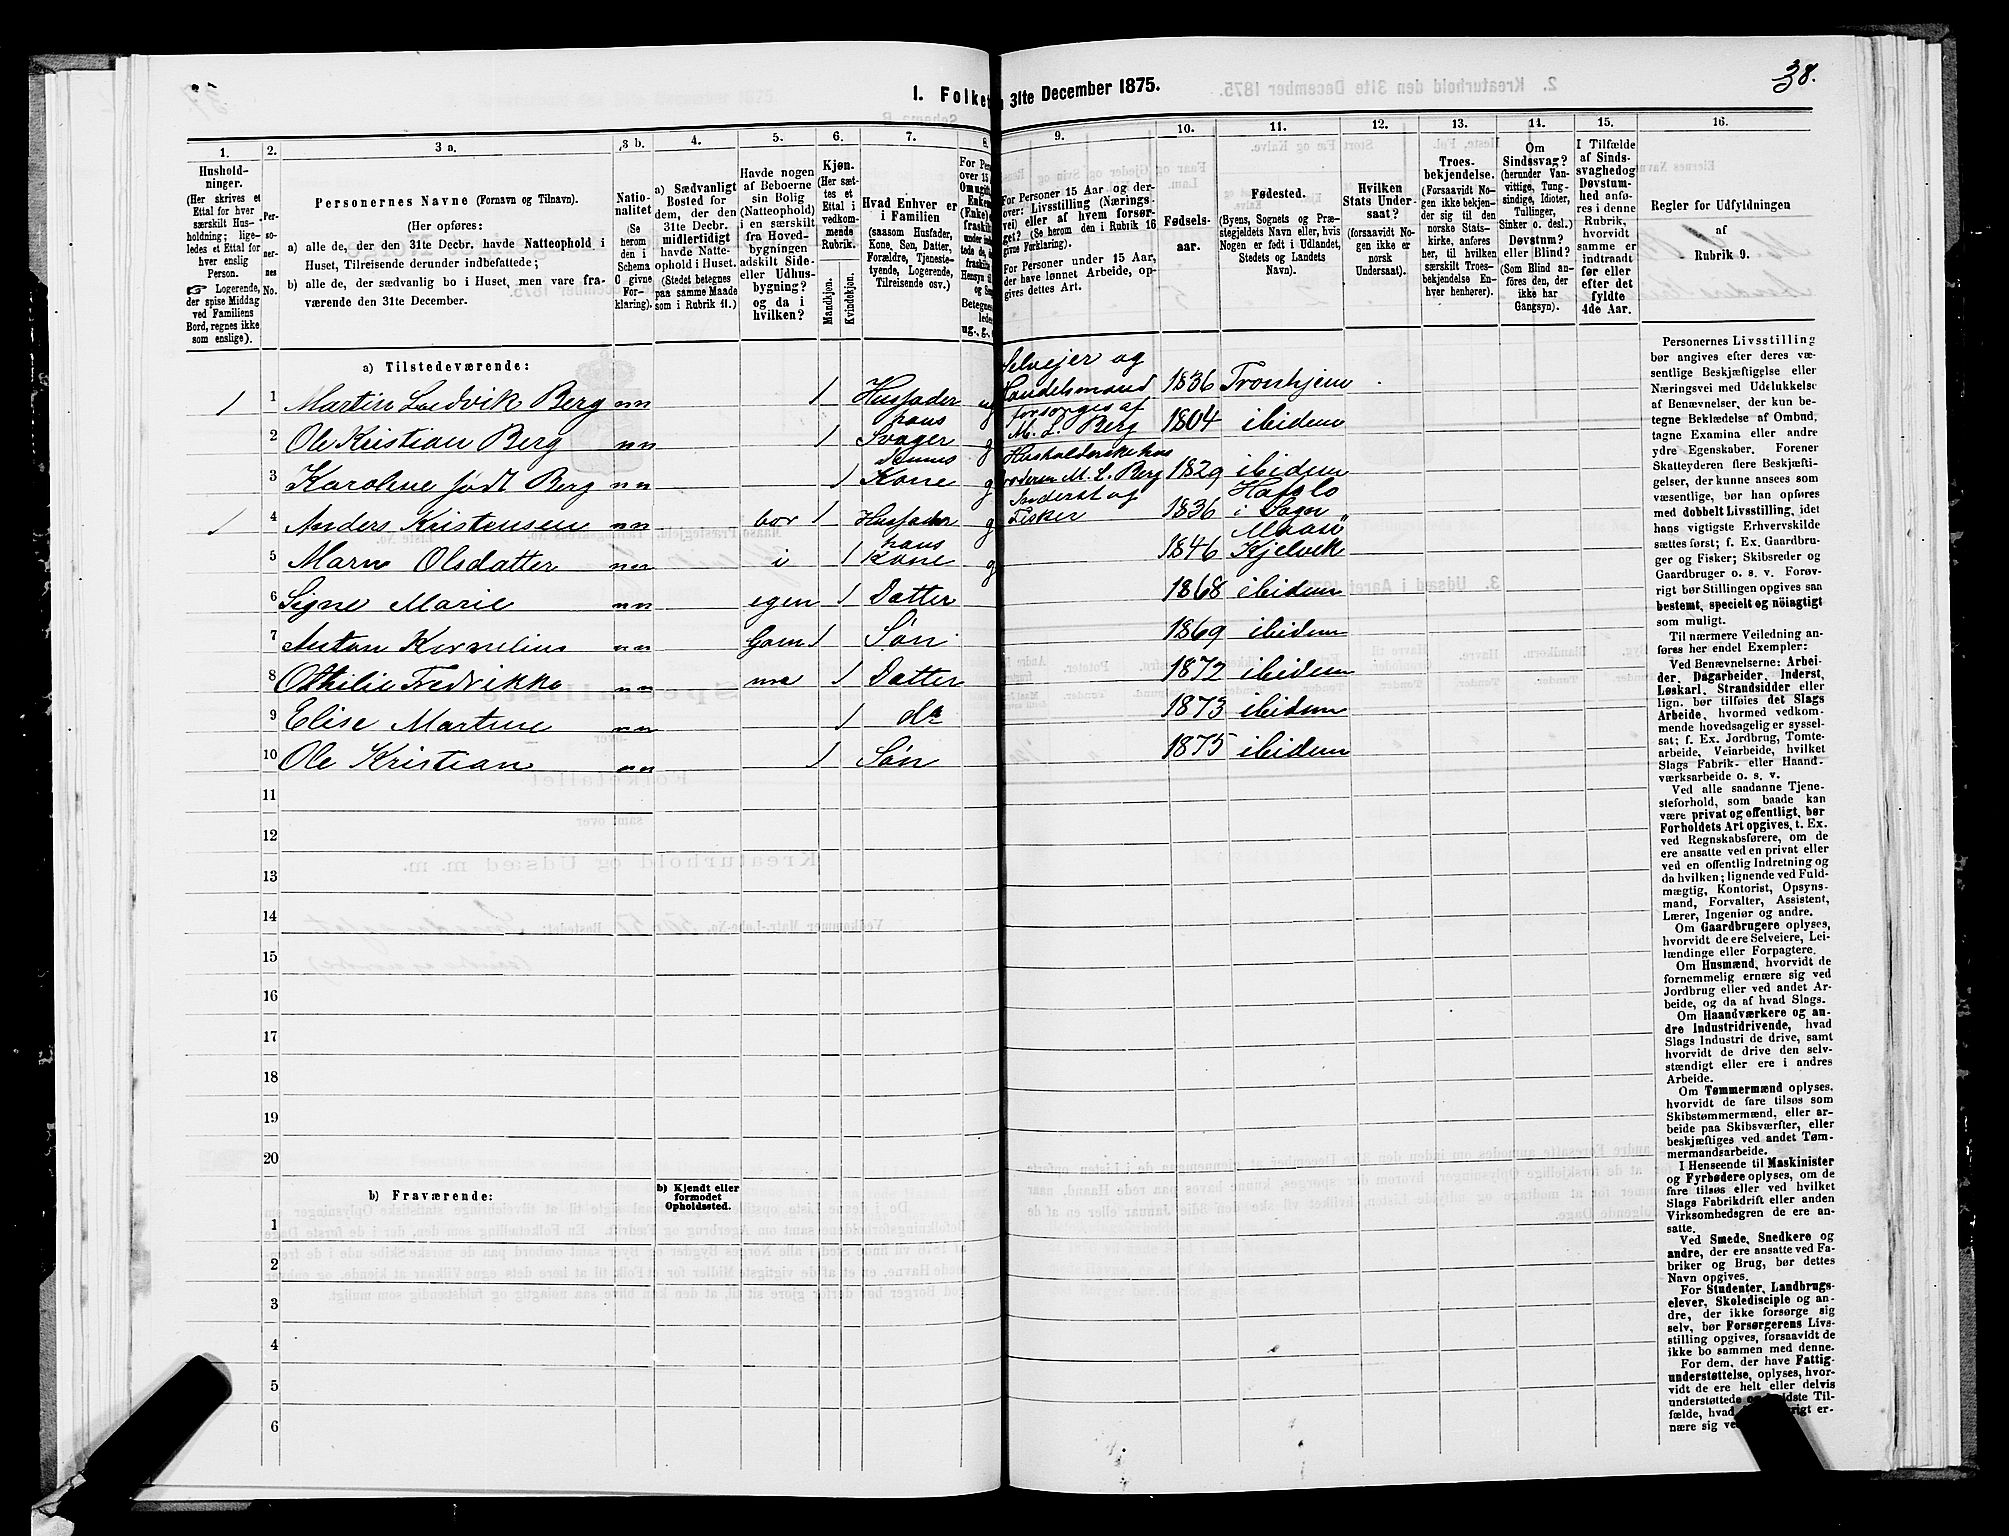 38.
1. Folket
31te December 1875.
1.
2.
3 a.
3 b.
4.
5.
6.
7.
8.
9.
10.
11.
12.
13.
14.
15.
16.
Hushold-
ninger.
(Her skrives et
Ettal for hver
særskilt Hus-
holdning; lige-
ledes et Ettal for
hver enslig
Person.
☞ Logerende,
der spise Middag
ved Familiens
Bord, regnes ikke
som enslige).
Per-
so-
ner-
nes
No.
Personernes Navne (Fornavn og Tilnavn).
(Her opføres:
a) alle de, der den 31te Decbr. havde Natteophold i
Huset, Tilreisende derunder indbefattede;
b) alle de, der sædvanlig bo i Huset, men vare fra-
værende den 31te December.
Natio-
nalitet
(Se
herom
den i
Schema
C givne
For-
klaring).
a) Sædvanligt
Bosted for
dem, der den
31te Decbr.
midlertidigt
havde Natte-
ophold i Huset.
(Stedet betegnes
paa samme Maade
som i Rubrik 11.)
Havde nogen
af Beboerne
sin Bolig
(Natteophold)
i en særskilt
fra Hoved-
bygningen
adskilt Side-
eller Udhus-
bygning?
og da i
hvilken?
Kjøn.
(Her sæt-
tes et
Ettal i
vedkom-
mende
Rubrik.)
Mandkjøn.
Kvindekjøn.
Hvad Enhver er
i Familien
(saasom Husfader,
Kone, Søn, Datter,
Forældre, Tjeneste-
tyende, Logerende,
Tilreisende osv.)
For Pers
over 15
Om ugift,
Enken
(Enke)
fraskilt
Betegnes
ledes
ug., g.,
For Personer 15 Aar og der-
over: Livsstilling (Nærings-
vei) eller af hvem forsør-
get? (Se herom den i Rubrik 16
givne Forklaring).
For Personer under 15 Aar,
der have lønnet Arbeide, op-
gives dettes Art.
Fødsels-
aar.
Fødested.
(Byens, Sognets og Præ-
stegjeldets Navn eller, hvis
Nogen er født i Udlandet,
Stedets og Landets
Navn).
Hvilken
Stats Under-
saat?
(forsaavidt No-
gen ikke er
norsk
Undersaat).
Troes-
bekjendelse.
(Forsaavidt No-
gen ikke bekjen-
der sig til den
norske Stats-
kirke, anføres
her, til hvilken
særskilt Troes-
bekjendelse En-
hver henhører).
Om
Sindssvag?
(herunder Van-
vittige, Tung-
sindige, Idioter,
Tullinger,
Sinker o. desl.)
Døvstum?
eller Blind?
(Som Blind an-
føres den, der
ikke har
Gangsyn).
I Tilfælde
af Sinds-
svaghed og
Døvstum-
hed anfø-
res i denne
Rubrik,
hvorvidt
samme er
indtraadt
før eller
efter det
fyldte
4de Aar.
Regler for Udfyldningen
af
Rubrik 9.
a) Tilstedeværende:
1 1 Martin Ludvik Berg nn 1 Husfader ug Selvejer og Handelsmand 1836 Tronhjem
2 Ole Kristian Berg nn 1 hans Svoger g forsørges af M. L. Berg 1804 ibidem
3 Karoline født Berg nn 1 dennes Kone g Husholderske hos Broderen M. L. Berg 1829 ibidem
1 4 Anders Kristensen nn bor 1 Husfader g Inderst og Fisker 1836 Hafslo i Sogn
5 Marn Olsdatter nn i 1 hans Kone g 1846 Maasø Kjelvik
6 Signe Marie nn egen 1 Datter 1868 ibidem
7 Anton Kornelius nn Gam 1 Søn 1869 ibidem
8 Othilie Fredrikke nn me 1 Datter 1872 ibidem
9 Elise Martine nn 1 do 1873 ibidem
10 Ole Kristian nn 1 Søn 1875 ibidem
11
12
13
14
15
16
17
18
19
20
b) Fraværende:
b) Kjendt eller
formodet
Opholdssted.
1
2
3
4
5
6
Personernes Livsstilling
bør angives efter deres væ-
sentlige Beskjæftigelse eller
Næringsvei med Udelukkelse
af Benævnelser, der kun be-
tegne Beklædelse af Ombud,
tagne Examina eller andre
ydre Egenskaber. Forener
Skatteyderen flere Beskjæfti-
gelser, der kunne ansees som
væsentlige, bør han opføres
med dobbelt Livsstilling, idet
hans vigtigste Erhvervskilde
sættes først; f. Ex. Gaardbru-
ger og Fisker; Skibsreder og
Gaardbruger o. s. v. Forøv-
rigt bør Stillingen opgives saa
bestemt, specielt og nöiagtigt
som muligt.
Til nærmere Veiledning an-
føres her endel Exempler:
Ved Benævnelserne: Arbei-
der, Dagarbeider, Inderst,
Løskarl, Strandsidder eller
lign. bør tilføies det Slags
Arbeide, hvormed vedkom-
mende hovedsagelig er syssel-
sat; f. Ex. Jordbrug, Tomte-
arbeide, Veiarbeide, hvilket
Slags Fabrik- eller Haand-
værksarbeide o. s. v.
Ved alle saadanne Tjene-
steforhold, som baade kan
være privat og offentligt, bør
Forholdets Art opgives, t. Ex.
ved Regnskabsførere, om de
ere ansatte ved en privat eller
ved en offentlig Indretning og
da hvilken; lignende ved Fuld-
mægtig, Kontorist, Opsyns-
mand, Forvalter, Assistent,
Lærer, Ingeniør og andre.
Om Gaardbrugere oplyses,
hvorvidt de ere Selveiere, Lei-
lændinge eller Forpagtere.
Om Husmænd, hvorvidt de
fornemmelig ernære sig ved
Jordbrug eller ved andet Ar-
beide, og da af hvad Slags.
Om Haandværkere og an-
dre Industridrivende, hvad
Slags Industri de drive, samt
hvorvidt de drive den selv-
stændigt eller ere i andres
Arbeide.
Om Tømmermænd oplyses,
hvorvidt de fare tilsøs som
Skibstømmermænd, eller ar-
beide paa Skibsværfter, eller
beskjæftiges ved andet Tøm-
mermandsarbeide.
I Henseende til Maskinister
og Fyrbødere oplyses, om de
fare tilsøs eller ved hvilket
Slags Fabrikdrift eller anden
Virksomhedsgren de ere an-
satte.
Ved Smede, Snedkere og
andre, der ere ansatte ved Fa-
briker og Brug, bør dettes
Navn opgives.
For Studenter, Landbrugs-
elever, Skoledisciple og an-
dre, der ikke forsørge sig
selv, bør Forsørgerens Livs-
stilling opgives, forsaavidt de
ikke bo sammen med denne.
For dem, der have Fattig-
understøttelse, oplyses, hvor-
vidt de ere helt eller delvis
understøttede
Til-
fælde, hvad
er-
nære sig